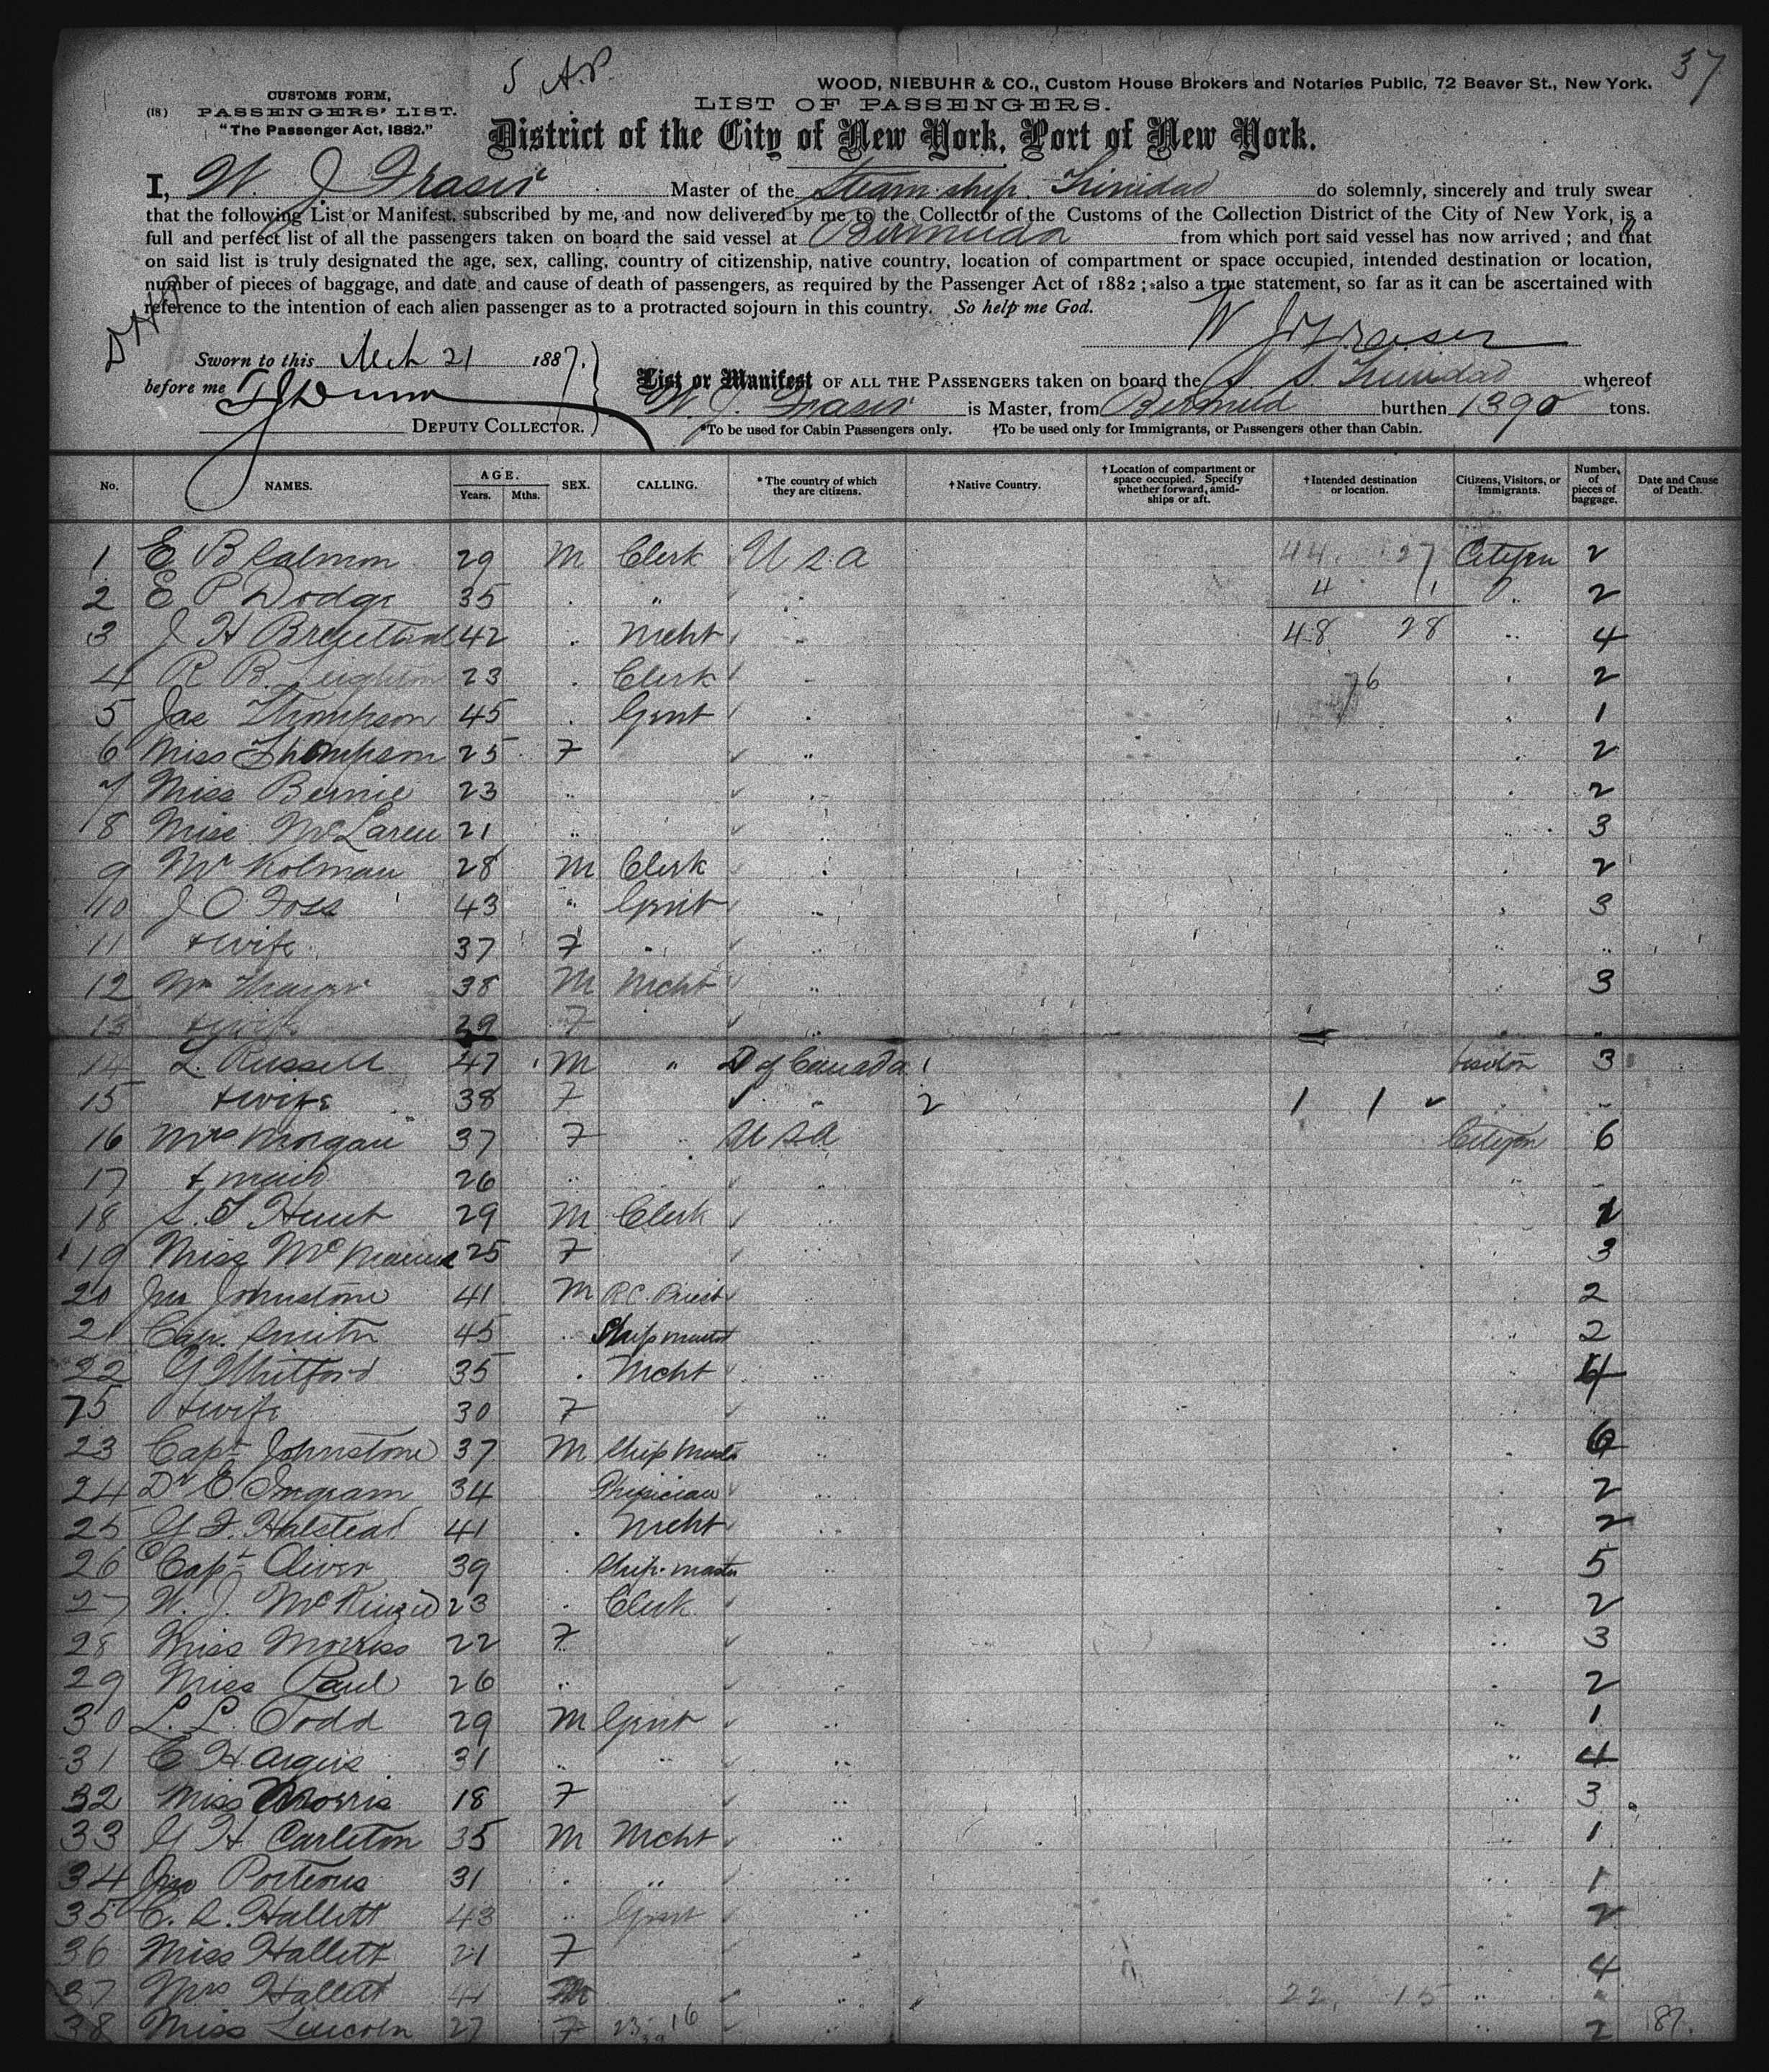 37
5 A.P.
WOOD, NIEBUHR & CO., Custom House Brokers and Notaries Public, 72 Beaver St., New York.
CUSTOMS FORM,
(18) PASSENGERS' LIST.
"The Passenger Act, 1882."
LIST OF PASSENGERS.
District of the City of New York, Port of New York.
I, W. J. Fraser Master of the Steam ship Trinidad do solemnly, sincerely and truly swear
that the following List or Manifest, subscribed by me, and now delivered by me to the Collector of the Customs of the Collection District of the City of New York, is a
full and perfect list of all the passengers taken on board the said vessel at Bermuda from which port said vessel has now arrived; and that
on said list is truly designated the age, sex, calling, country of citizenship, native country, location of compartment or space occupied, intended destination or location,
number of pieces of baggage, and date and cause of death of passengers, as required by the Passenger Act of 1882; also a true statement, so far as it can be ascertained with
reference to the intention of each alien passenger as to a protracted sojourn in this country. So help me God.
W J Fraser
Sworn to this Mch 21 1887.
before me
DEPUTY COLLECTOR.
List or Manifest OF ALL THE PASSENGERS taken on board the S. S. Trinidad whereof
W. J. Fraser is Master, from Bermud burthen 1390 tons.
*To be used for Cabin Passengers only. †To be used only for Immigrants, or Passengers other than Cabin.
No. NAMES. AGE. Years. Mths. SEX. CALLING. *The country of which they are citizens. †Native Country. †Location of compartment or space occupied. Specify whether forward, amidships or aft. †Intended destination or location. Citizens, Visitors, or Immigrants. Number, of pieces of baggage. Date and Cause of Death.
1 E B Salmon 29 M Clerk U S. A 44 27 Citizen 2
2 E P Dodge 35 . " 4 1 " 2
3 J H 42 . Mcht 48 28 " 4
4 R B. Leighton 23 . Clerk 76 " 2
5 Jas Thompson 45 . Gent " 1
6 Miss Thompson 25 F " 2
7 Miss Bernie 23 " 2
8 Miss McLaren 21 " 3
9 Mr Kolman 28 M Clerk 2
10 J O Foss 43 " Gent 3
11 & wife 37 F "
12 Mr 38 M Mcht 3
13 & wife 39 F "
14 L. Russell 47 M " D of Canada 1 3
15 & wife 38 F " 2 1 1
16 Mrs Morgan 37 F U S A Citizen 6
17 & maid 26 "
18 S. T Hunt 29 M Clerk
19 Miss 25 F 3
20 Jno Johnstone 41 M R.C. Priest 2
21 Capt. Smith 45 " Ship master 2
22 G Whitford 35 . Mcht 4
75 & wife 30 F
23 Capt Johnstone 37 M Ship Mastr 6
24 Dr E Ingram 34 Physician 2
25 G F. Halstead 41 . Mcht 2
26 Capt Oliver 39 . Ship-master 5
27 W. J. McKinzie 23 . Clerk 2
28 Miss Morriss 22 F 3
29 Miss Paul 26 " 2
30 L. L. Todd 29 M Gent 1
31 C H Argus 31 " " 4
32 Miss Morris 18 F 3
33 G H Carleton 35 M Mcht 1
34 Jno Porteous 31 . " 1
35 C. S. Hallett 43 " Gent 2
36 Miss Hallett 21 F 4
37 Mrs Hallett 41 22 15 "
38 Miss Lincoln 27 F 23 16 2 187.